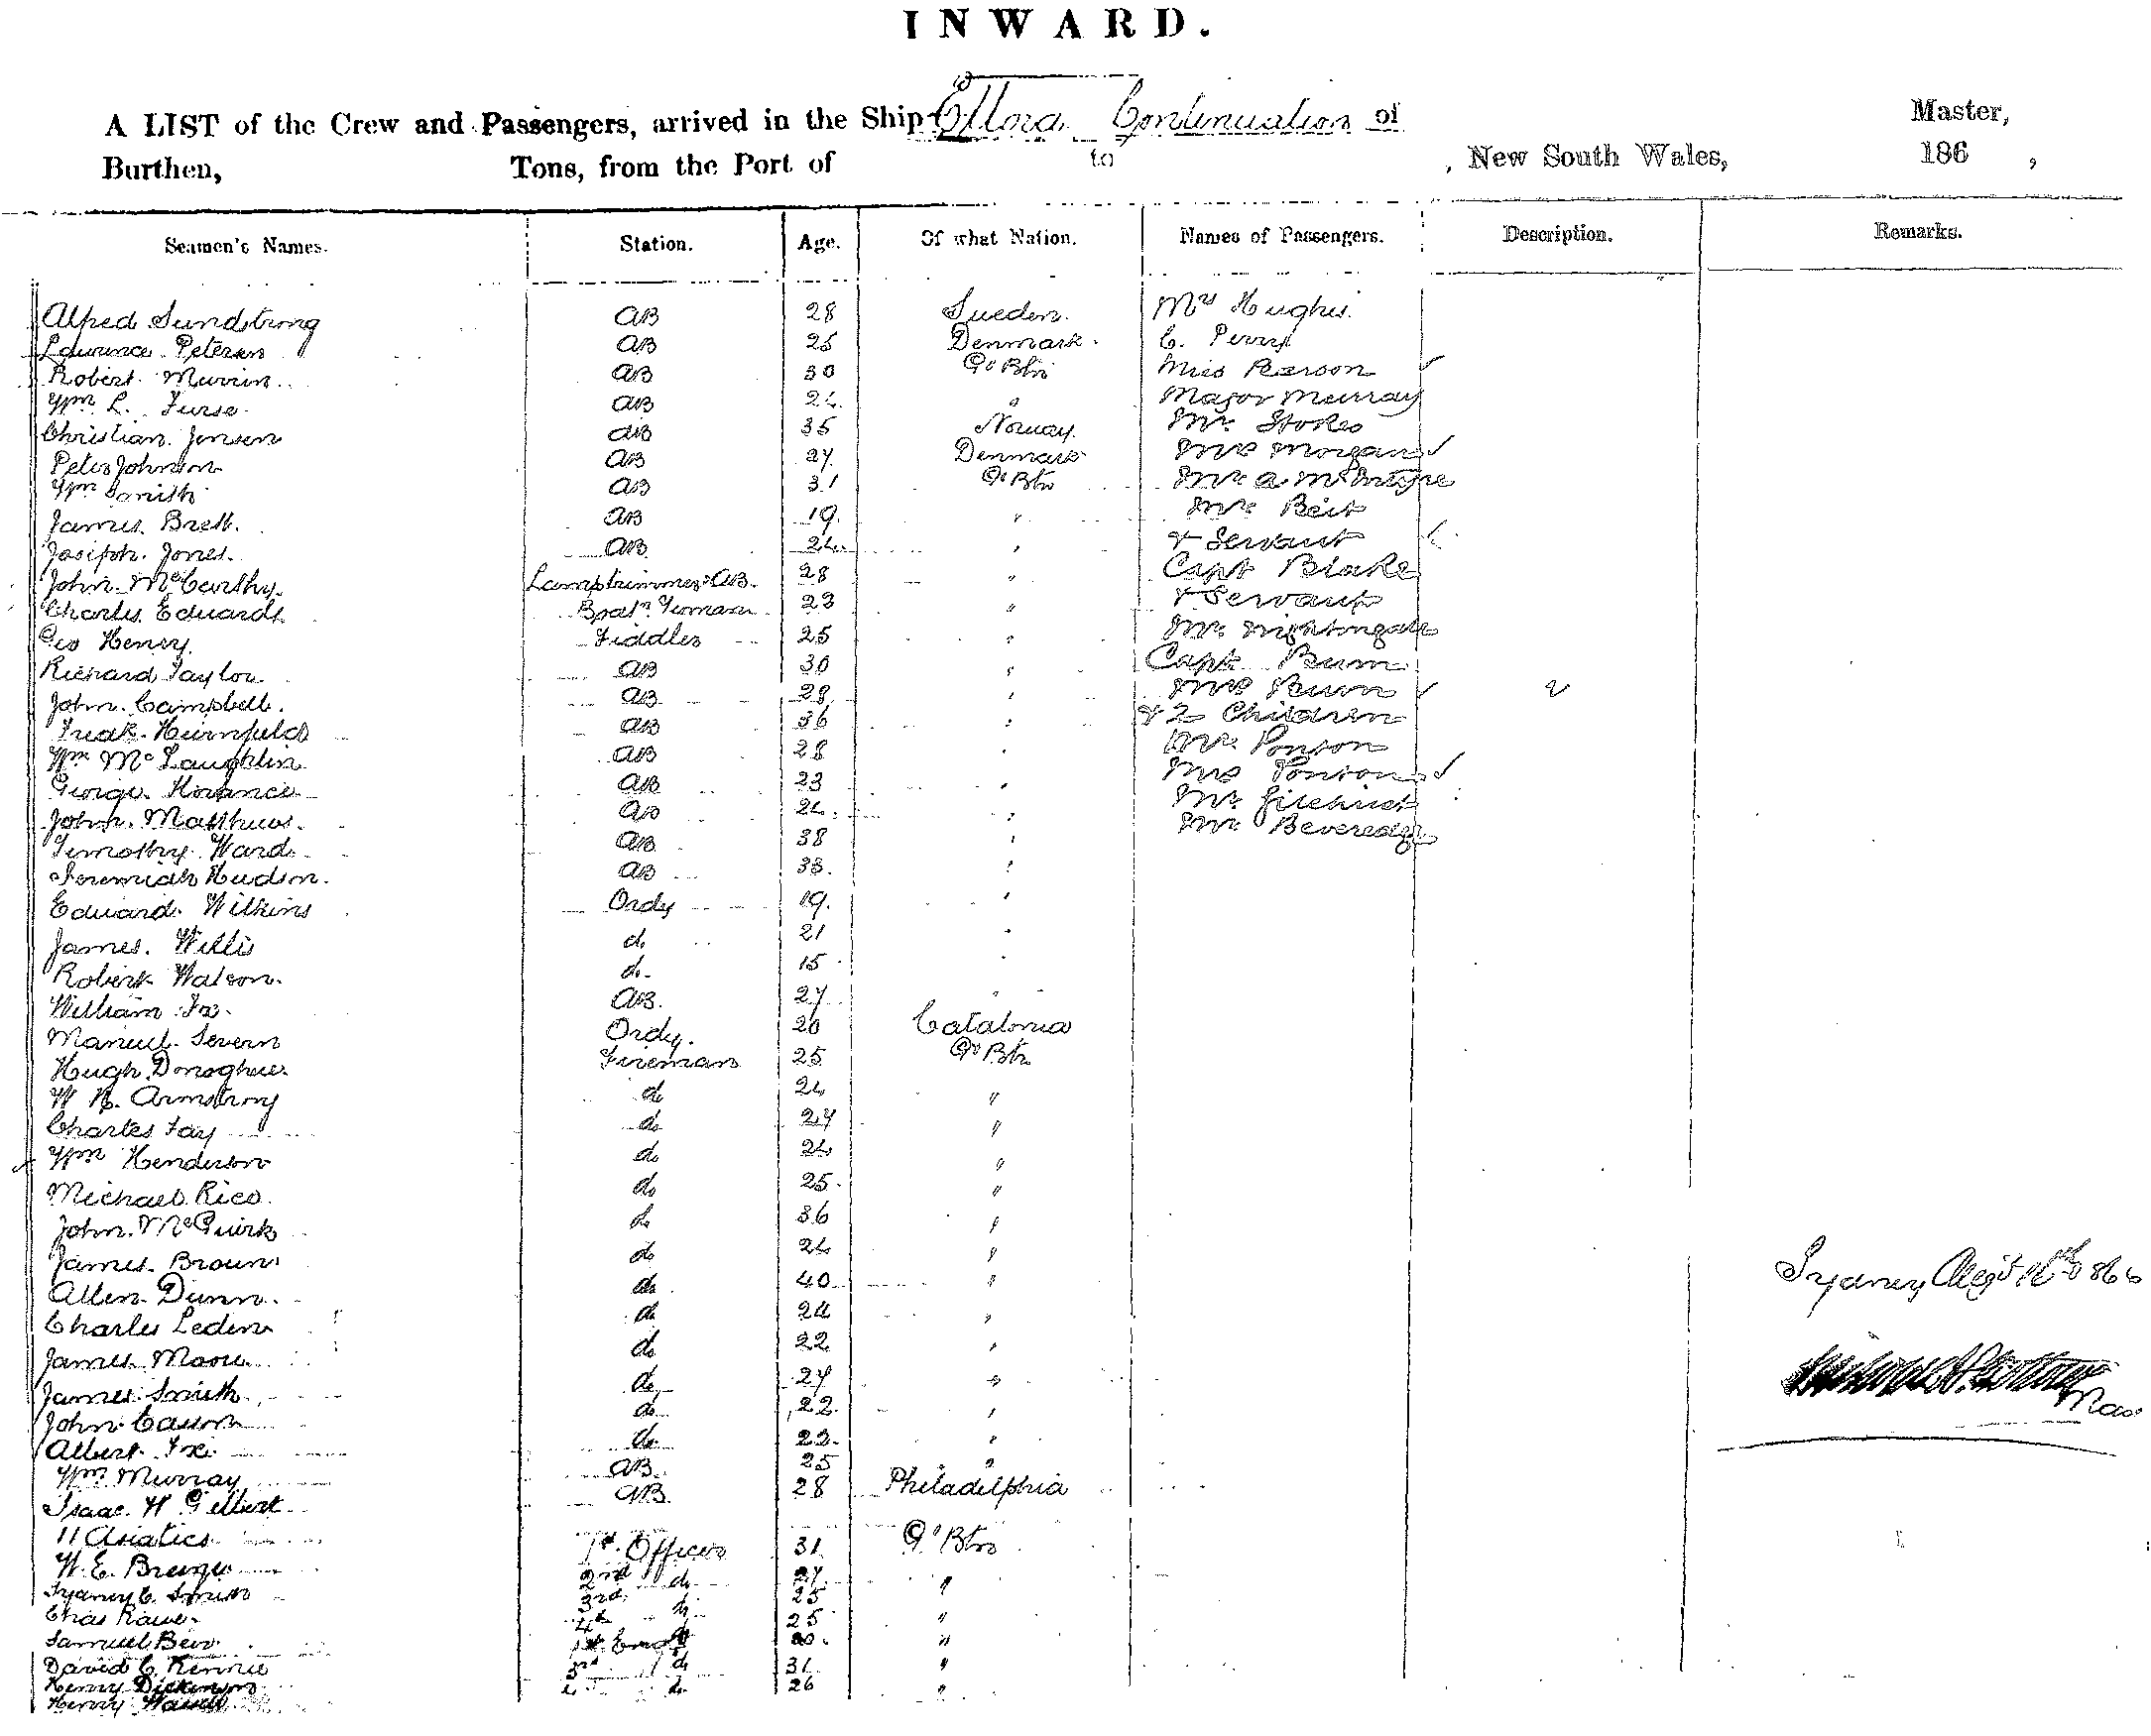 INWARD.
A LIST of the Crew and Passengers, arrived in the Ship Ellora Continuation of Master,
Burthen, Tons, from the Port of to , New South Wales, 186 ,
Seamen's Names. Station. Age. Of what Nation. Names of Passengers. Description. Remarks.
Alfred Sundstrong AB 28 Sweden. Mrs Hughes.
Lawrence Petersen AB 25 Denmark. C. Perry
Robert Murrin AB 30 Gt Btn Miss Pearson
Wm L. Furse AB 24 " Major Murray
Christian Jensen AB 35 Norway. Mr Stokes
Peter Johnson AB 27 Denmark Mrs Morgan
Wm Smith AB 31 Gt Btn Mr A McIntyre
James Brett. AB 19. " Mr Beit
Joseph Jones. AB 24 " & Servant
John McCarthy. Lamptrimmer & AB. 28 " Capt Blake
Charles Edwards Boatn Yeoman 23 " & Servant
Geo Henry. Fiddler 25 " Mr Nightingale
Richard Taylor AB 30 " Capt
John Campbell. AB 28 " Mrs
AB 36 " & 2 Children
Wm McLaughlin AB 28 " Mr Ponson
George AB 23 " Mrs Ponson
John Matthews. AB 24. " Mr Gilchrist
Timothy Ward. AB 38 " Mr Beveredge
Jeremiah Hudson. AB 33. "
Edward Wilkins Ordy 19. "
James. Willis do 21 "
Robert Watson. do 15 "
William Fox. AB. 27 "
Manuel Severn Ordy. 20 Catalonia
Hugh Donoghue. Fireman 25 Gt Btn
W H. Armstrong do 24 "
Charles Fay do 27 "
Wm Henderson do 24 "
Michael Rice. do 25 "
John. McGuirk do 36 "
James. Brown do 24 "
Allen Dunn. do 40 "
Charles Leden do 24 "
James. Moore do 22 "
James Smith do 27 "
John do 22 "
Albert Fox do 22 "
Wm Murray AB 25 "
Isaac. W Gilbert AB 28 Philadelphia
11 Asiatics
W. E. 1st Officer 31 Gt Btn
Sydney C. Smith 2nd do 27 "
Chas 3rd do 25
Samuel 4th do 25 "
David C. Rennie 1st "
Henry Dickinson 3rd do 31 "
Henry do 26 "
Sydney Augst 1866